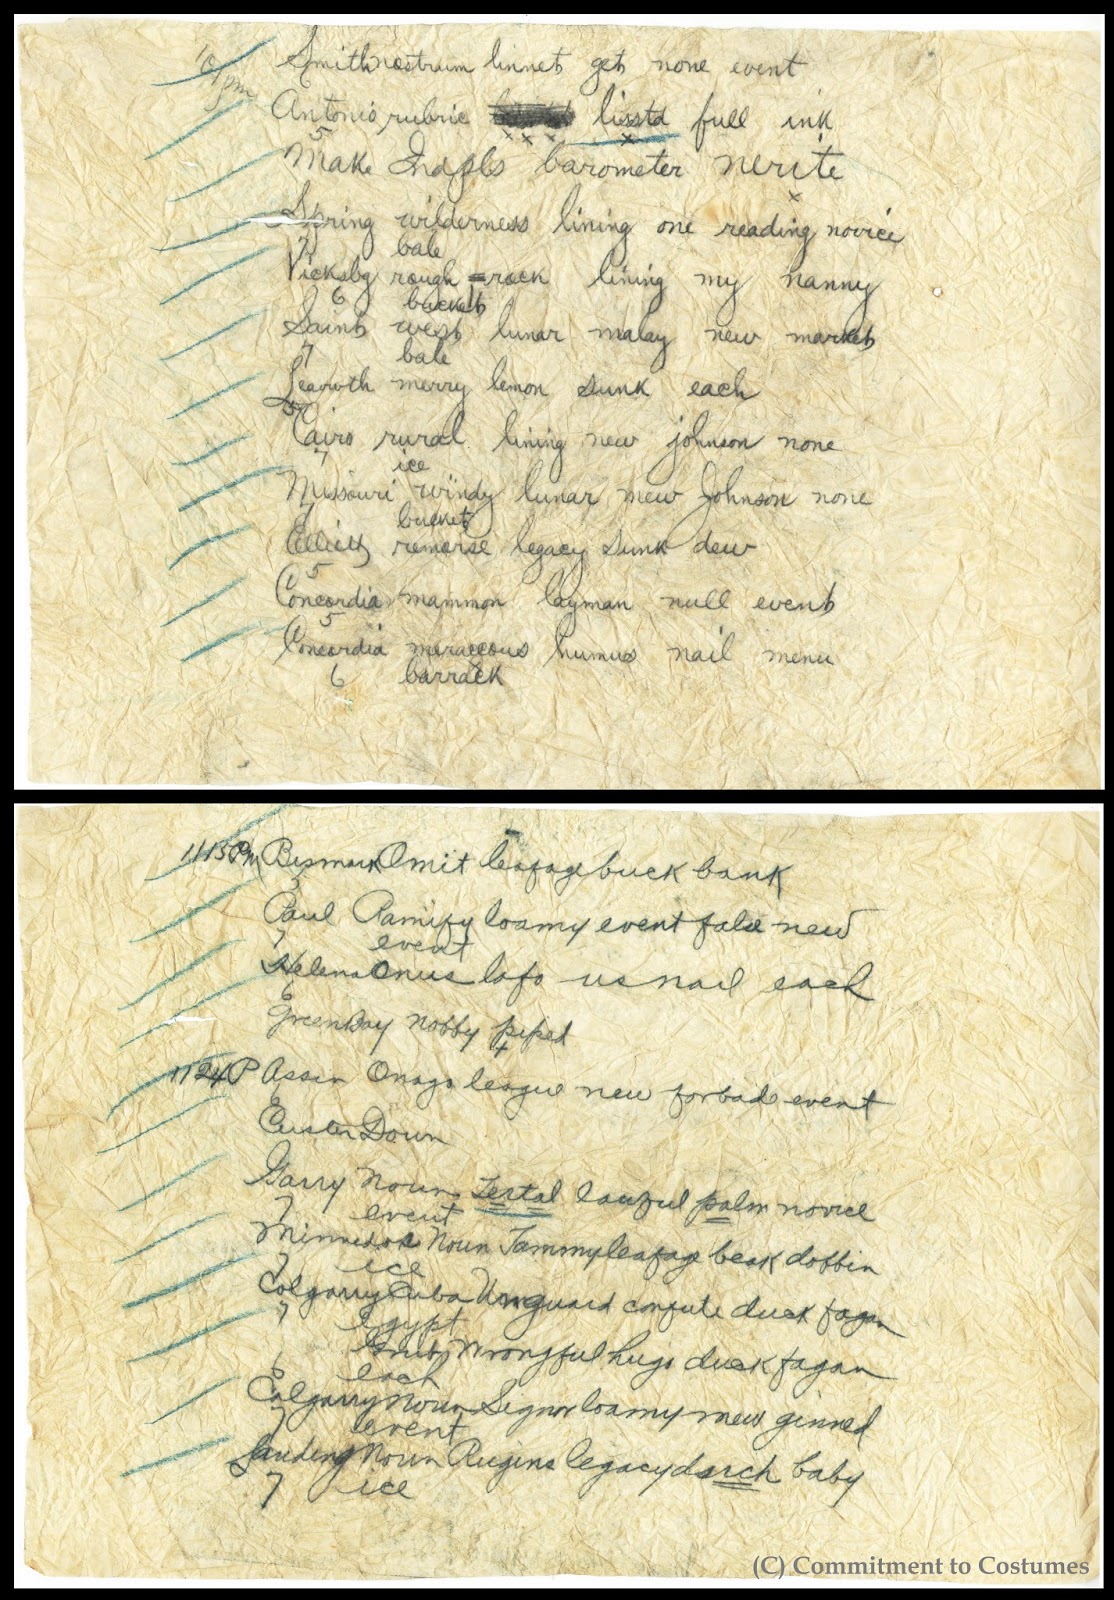 10pm Smith nostrum linnet get none event
Antonio rubric lissta full ink
5
Make Indpls barometer nerite
Spring wilderness lining one reading novice
7 bale
Vicksbg rough = rack lining my nanny
6 bucket
Saint west lunar malay new market
7 bale
Leavwth merry lemon sunk each
5
Cairo rural lining new johnson none
7 ice
Missouri windy lunar mew Johnson none
7 bucket
Elliott remorse legacy sunk dew
5
Concordia mammon layman null event
5
Concordia meraccous humus nail menu
6 barrack
1113 PM Bismark Omit leafage buck bank
5
Paul Ramify loamy event false new
7 event
Helena Onus lofo us nail each
6
Green Bay nobby piped
4
1124 P Assin Onago league new forbade event
6
Custer Down
Garry Noun Tertal lawful palm novice
7 event
Minnedos Noun Jammy leafage beak dobbin
7 ice
Colgarry Cuba Unguard confute duck fagan
7 Egypt
Grub Wrongful hugo duck fagan
6 each
Calgarry Noun Signor loamy mew ginned
7 event
Landing Noun Rugins legacy dsrch baby
7 ice
(C) Commitment to Costumes